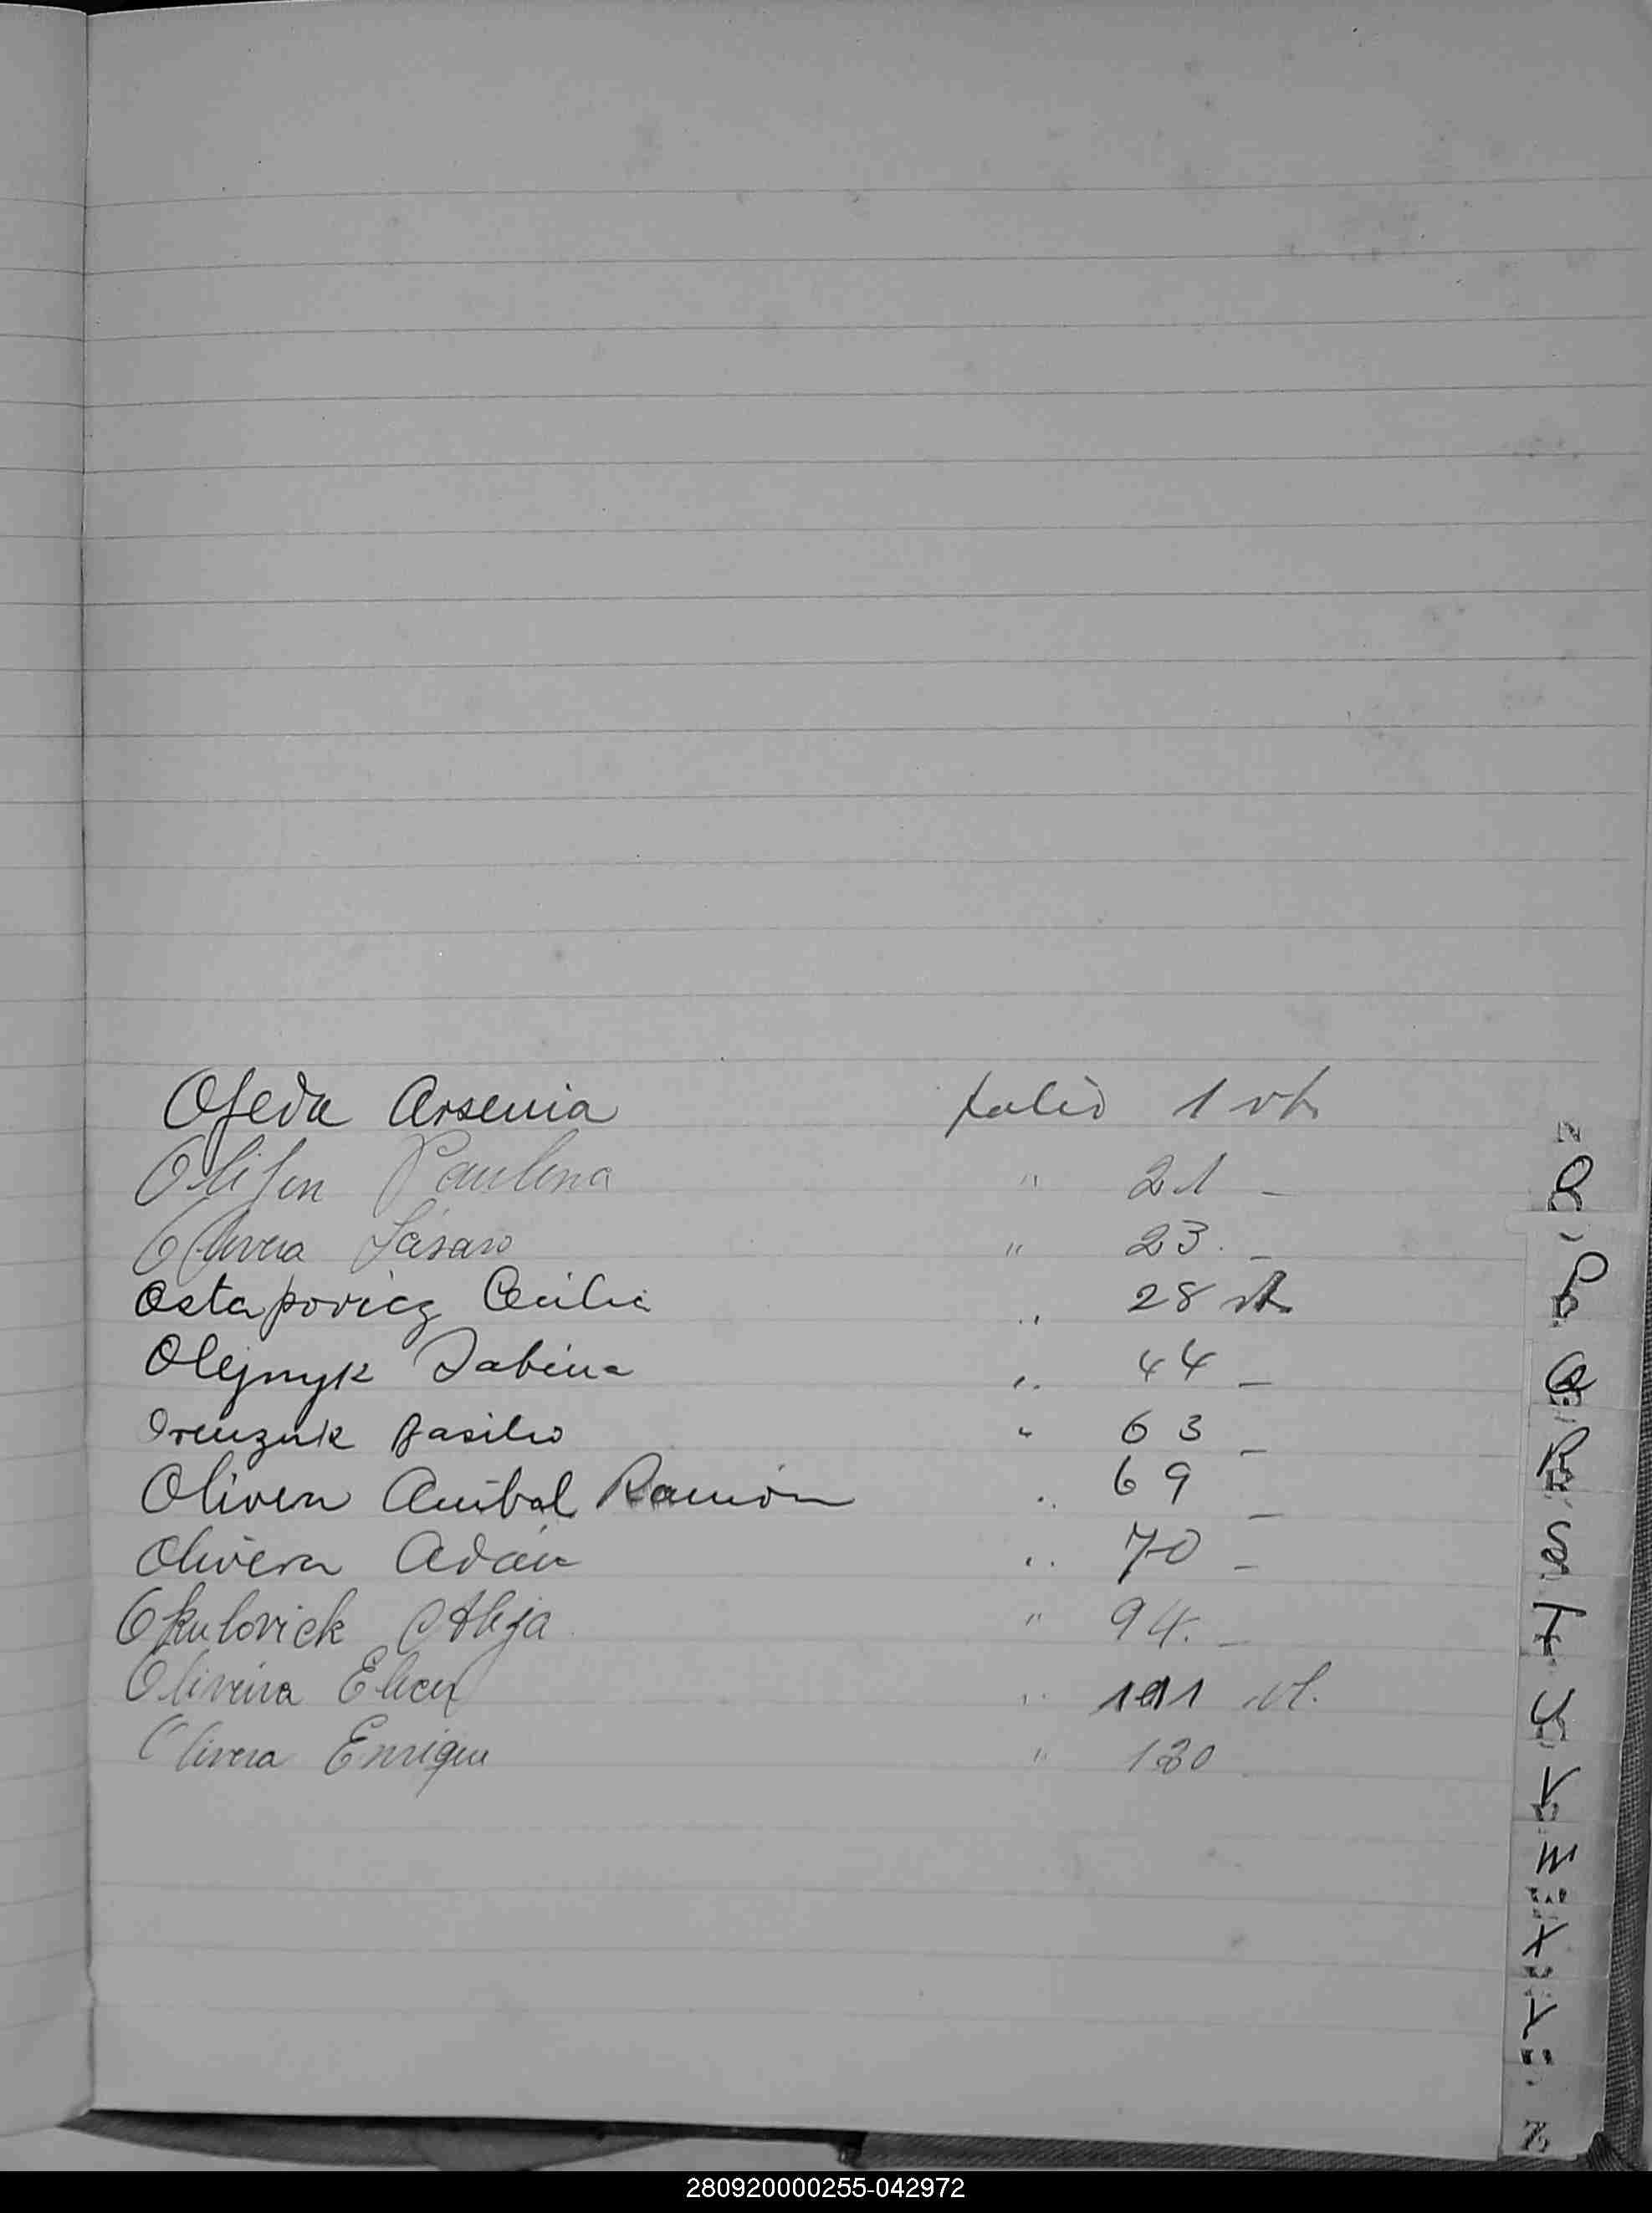 Ojeda Arsenia folio 1 vt.
Olifen Paulina " 21 -
Olivera Lásaro " 23. -
Ostapovicz Cecilia " 28 vt.
Olejnyk Sabina " 44 -
Orenzuk Basilio " 63 -
Olivera Anibal Ramón " 69 -
Olivera Adán " 70 -
Okulovick " 94. -
Oliveira " 101 vt.
Olivera Enrique " 120
N
O
P
Q
R
S
T
U
V
W
X
Y
Z
280920000255-042972